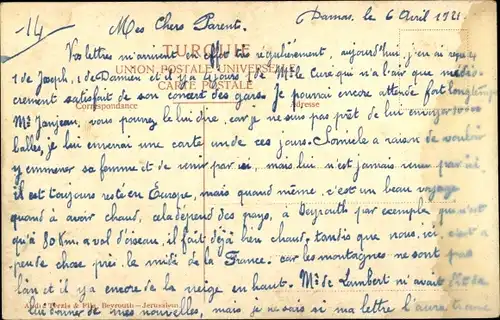 14
Damas, le 6 Avril 1921.
Mes Chers Parents.
TURQUIE
Vos lettres m'arrivent en effet très régulièrement, aujourd'hui j'en ai reçu
UNION POSTALE UNIVERSELLE
1 de Joseph, 1 de Damien et il y a jours 1 de Mr le Curé qui n'a l'air que médio
CARTE POSTALE
crement satisfait de son concert des gars. Je pourrai encore attendre fort longtemps
Correspondance
Adresse
Mr Janjean, vous pourrez le lui dire, car je ne suis pas prêt de lui envoyer
balles, je lui enverrai une carte un de ces jours. a raison de vouloir
y emmener sa femme et de venir par ici, mais lui n'est jamais venu par ici.
il est toujours resté en Europe, mais quand même, c'est un beau voyage
quand à avoir chaud, cela dépend des pays, à Beyrouth par exemple qui n'est
qu'à 80 Km. à vol d'oiseau, il fait déjà bien chaud, tandis que nous, ici c'est à
peu de chose près le midi de la France. car les montagnes ne sont pas
loin et il y a encore de la neige en haut. Mr de Lambert n'avait
André Terzis & Fils, Beyrouth—Jerusalem.
lui donner de mes nouvelles, mais je ne sais si ma lettre l'aura